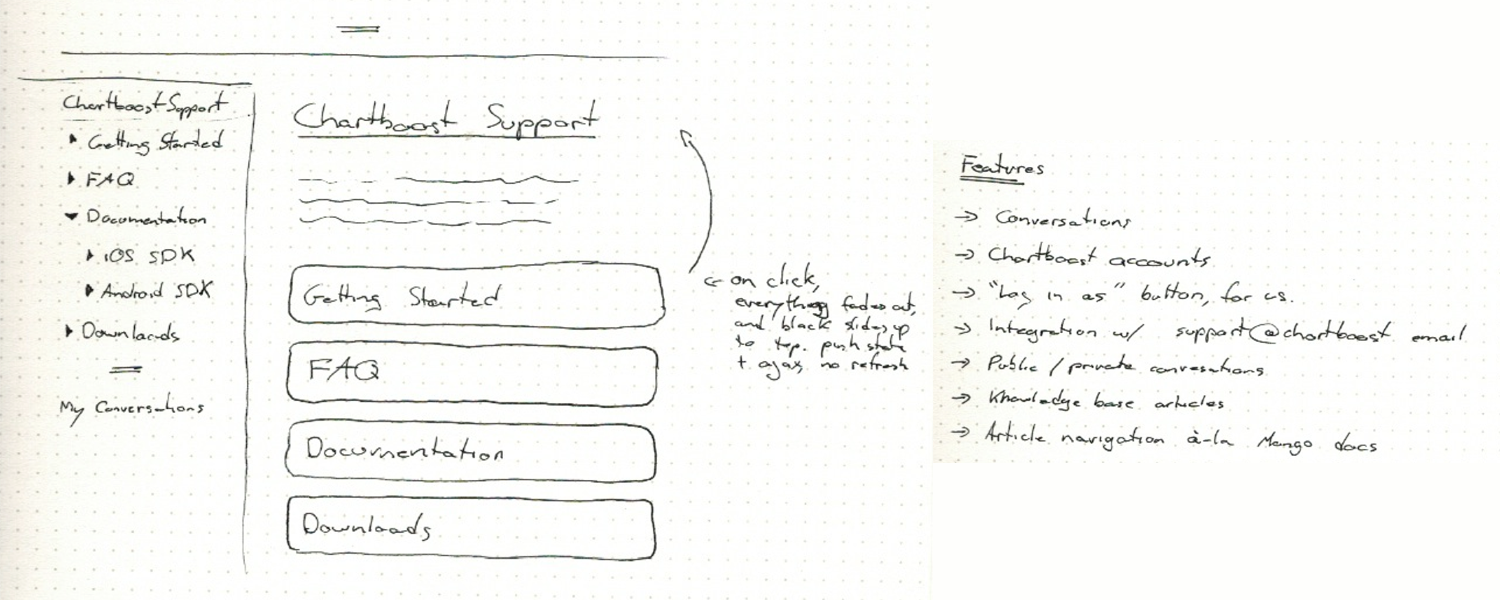 Chartboost Support
Getting Started
FAQ
Documentation
iOS SDK
Android SDK
Downloads
My Conversations
Chartboost Support
Getting Started
FAQ
Documentation
Downloads
← on click,
everything fades out,
and black slides up
to top. push state
+ ajax, no refresh
Features
→ Conversations
→ Chartboost accounts
→ "Log in as" button, for us.
→ Integration w/ support@chartboost email
→ Public / private conversations
→ Knowledge base articles
→ Article navigation à-la Mongo docs